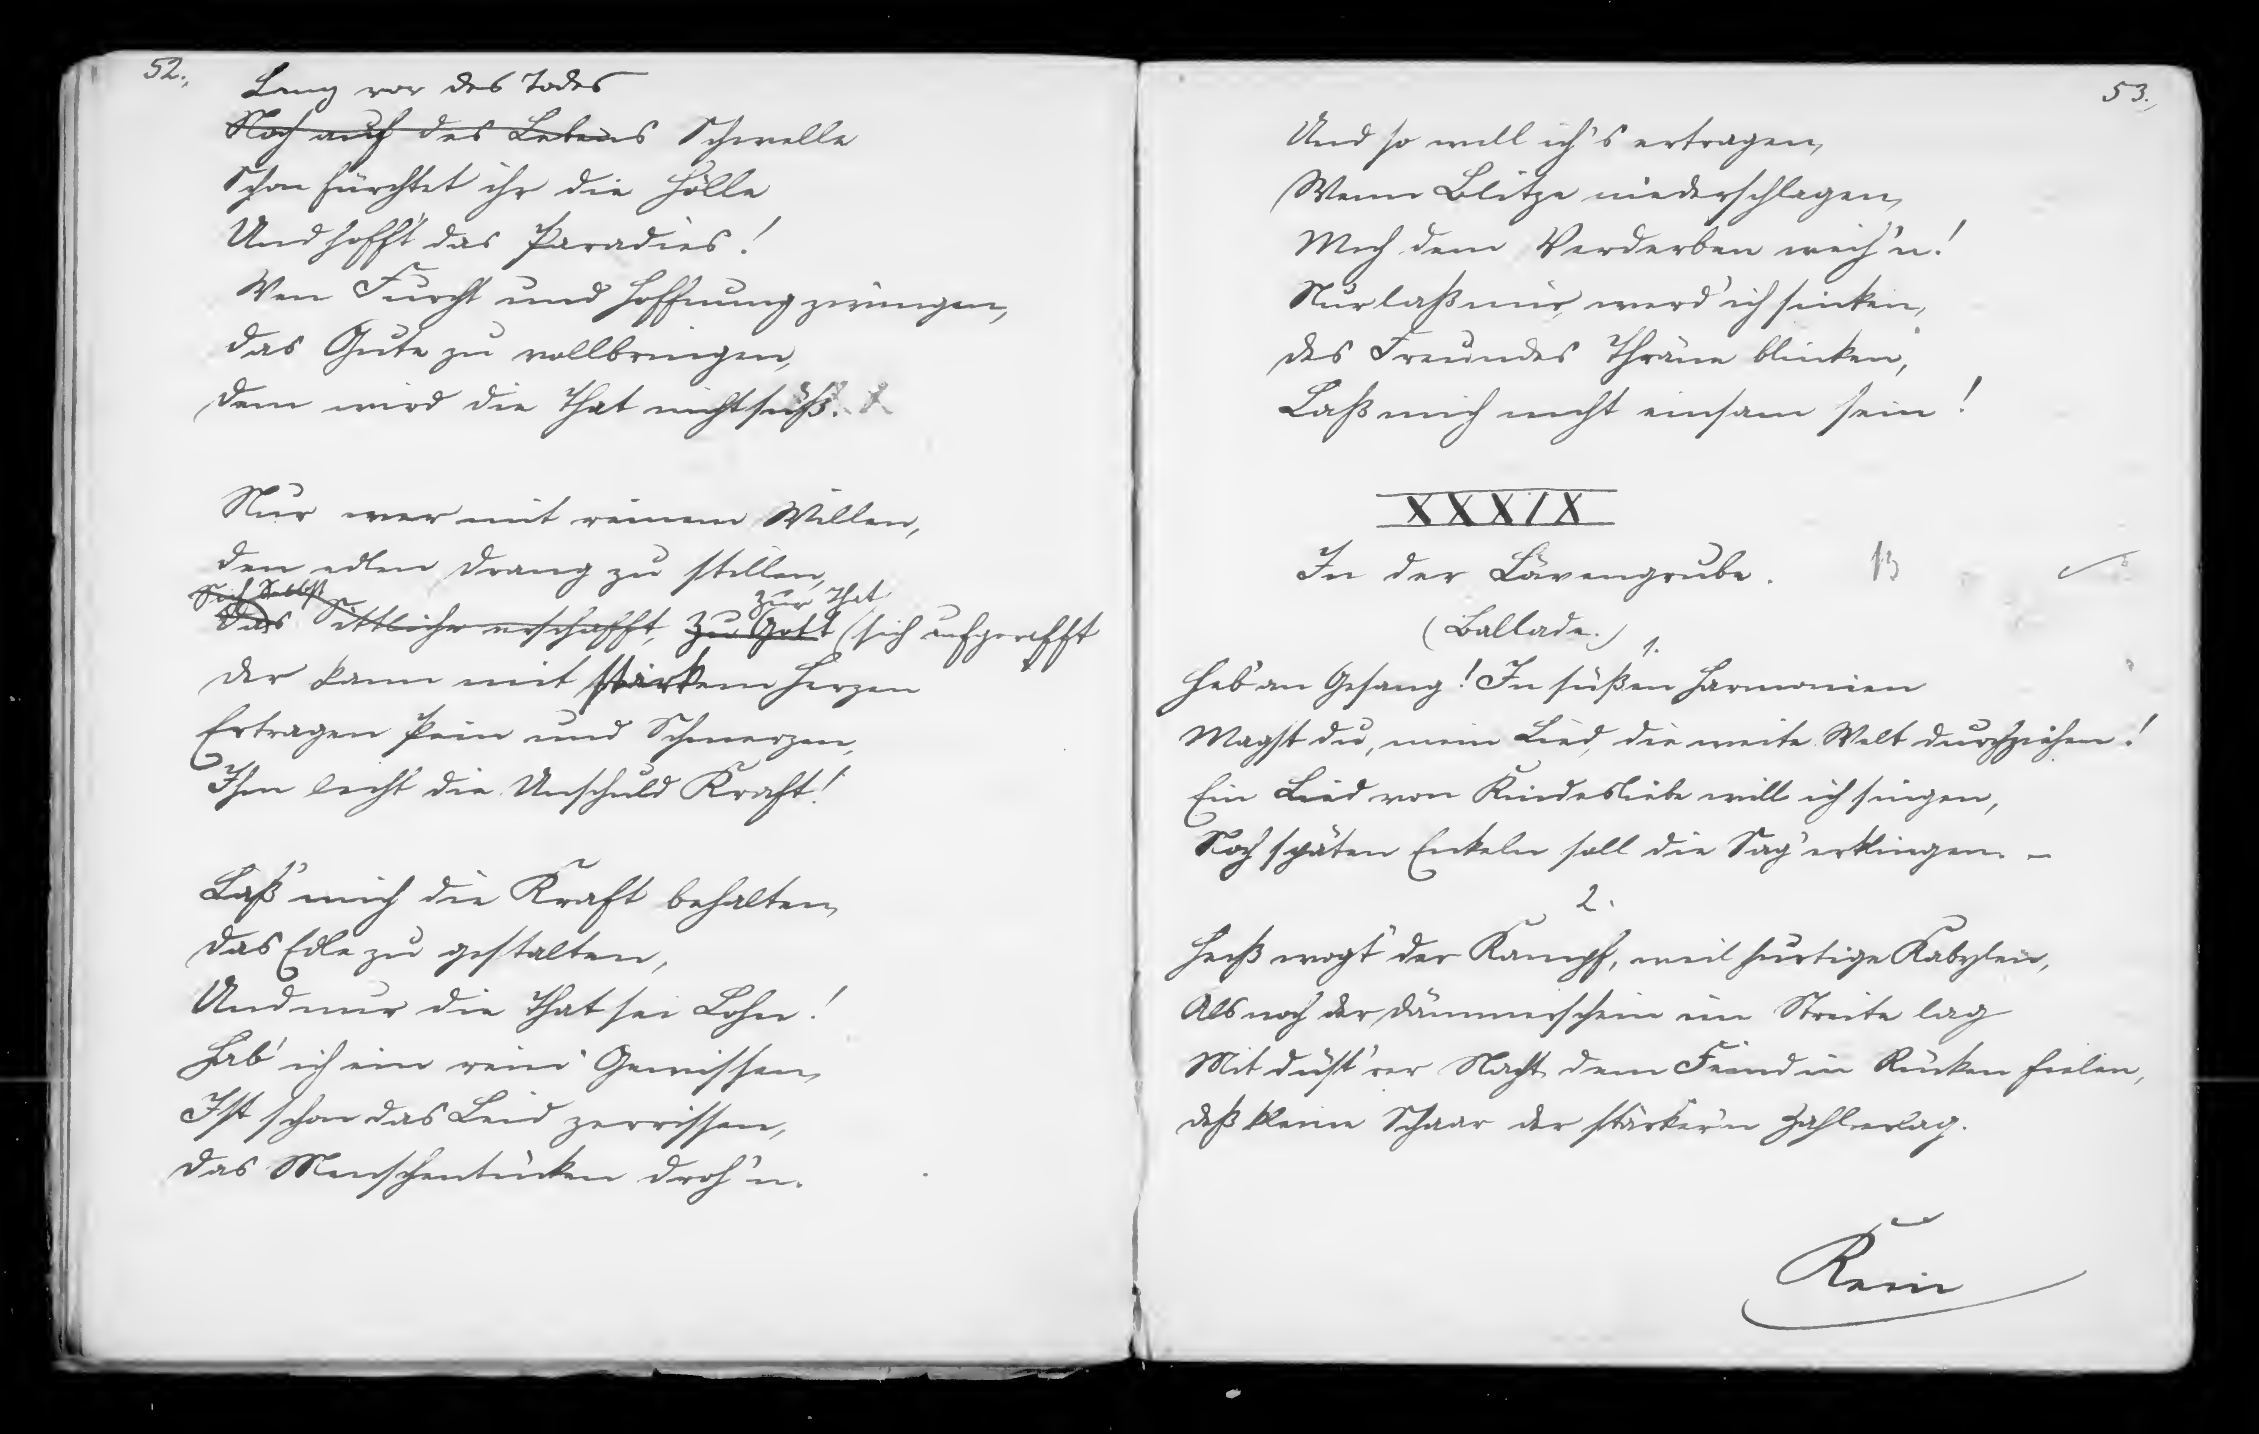 52.
Lang vor des Todes
Noch auf des Lebens Schwelle
Schon fürchtet ihr die Hölle
Und hofft das Paradies!
Wen Furcht und Hoffnung zwingen,
Das Gute zu vollbringen,
Dem wird die That nicht süß.
Nur wer mit reinem Willen,
Den edlen Drang zu stillen,
Sich Selbst zur That
Das Sittliche erschafft, Zu Gott sich aufgerafft
Der kann mit starkem Herzen
Ertragen Pein und Schmerzen,
Ihm leiht die Unschuld Kraft!
Laß' mich die Kraft behalten,
Das Edle zu gestalten,
Und nur die That sei Lohn!
Hab' ich ein rein' Gewissen,
Ist schon das Leid zerrissen,
Das Menschentücken droh'n.
53.
Und so will ich's ertragen,
Wenn Blitze niederschlagen,
Mich dem Verderben weih'n!
Nur laß mir, werd' ich sinken,
Des Freundes Thräne blinken,
Laß mich nicht einsam sein!
XXXIX
In der Lövengrube.
(Ballade.)
1.
Heb' an Gesang! In süßen Harmonien
Magst du, mein Lied, die weite Welt durchziehen!
Ein Lied von Kindesliebe will ich singen,
Noch späten Enkeln soll die Sag' erklingen. –
2.
Heiß wogt' der Kampf, weil hurtige Kabylen,
Als noch der Dämmerschein im Streite lag
Mit düst'rer Nacht dem Feind in Rücken fielen,
Daß kleine Schaar der stärker'n Zahl erlag.